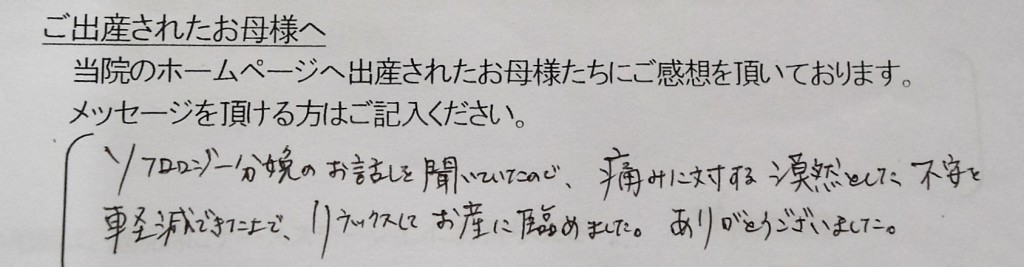 ご出産されたお母様へ
当院のホームページへ出産されたお母様たちにご感想を頂いております。
メッセージを頂ける方はご記入ください。
ソフロロジー分娩のお話しを聞いていたので、痛みに対する漠然とした不安を
軽減できた上で、リラックスしてお産に臨めました。ありがとうございました。